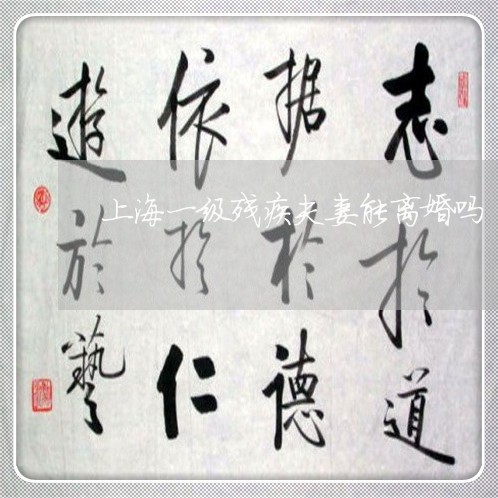 志於道
据於德
依於仁
遊於藝
上海一级残疾夫妻能离婚吗